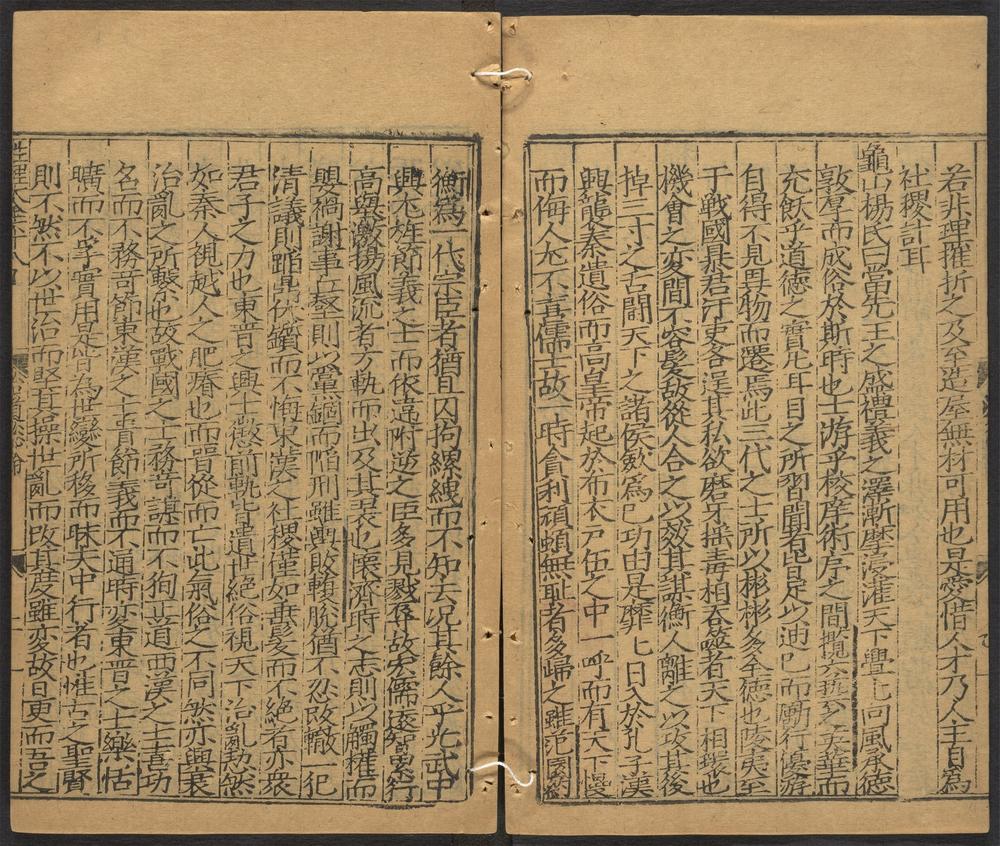 若非理摧折之及至造屋無材可用也是愛借人才乃人主自為
社稷計耳
龜山楊氏曰當先王之盛禮義之澤漸摩浸灌天下壘上向風承德
敦孝而成俗於斯時也士游乎校庠術序之間攬六藝之英華而
充飫乎道德之實凡耳目之所習聞者皆足以迪己而勵行優游
自得不見異物而遷焉此三代之士所以彬彬多全德也陵夷至
于戰國暴君汙吏各逞其私欲磨牙搖毒相吞噬者天下相環也
機會之变間不容髮敌從人合之以效其謀衡人離之以攻其後
掉三寸之舌閗天下之諸侯欵為己功由是靡上日入於孔子漢
興襲秦遺俗而高皇帝起於布衣戸伍之中一呼而有天下慢
而侮人尤不喜儒士故一時貪利頑頓無耻者多歸之雖范國
衡為一代宗臣者猶且囚拘縲紲而不知去况其餘人乎光武中
興尤旌節義之士而依違附逆之臣多見戮辱故宏儒遠智累行
高舉激揚風流者方軌而出及其衰也懷濟時之志則以觸權而
嬰禍謝事丘壑則以黨錮而陷刑雖輿敗輹脱猶不忍改轍一犯
清議則蹈鼎伏鑕而不悔東漢之社稷僅如垂髪而不絕者亦衆
君子之力也東晋之興士懲前軌皆遺世絕俗視天下治亂㓜然
如秦人視越人之肥瘠也而晋從而亡此氣俗之不同然亦興衰
治亂之所繫也故戰國之士務苟謀而不狥正道西漢之士喜功
名而不務苛節東漢之士昔節義而不通時变東晋之士樂恬
曠而不孚實用是皆為世變所移而昧大中行者也惟古之聖賢
則不然不以世治而堅其操世亂而改其度雖变故日更而吾之